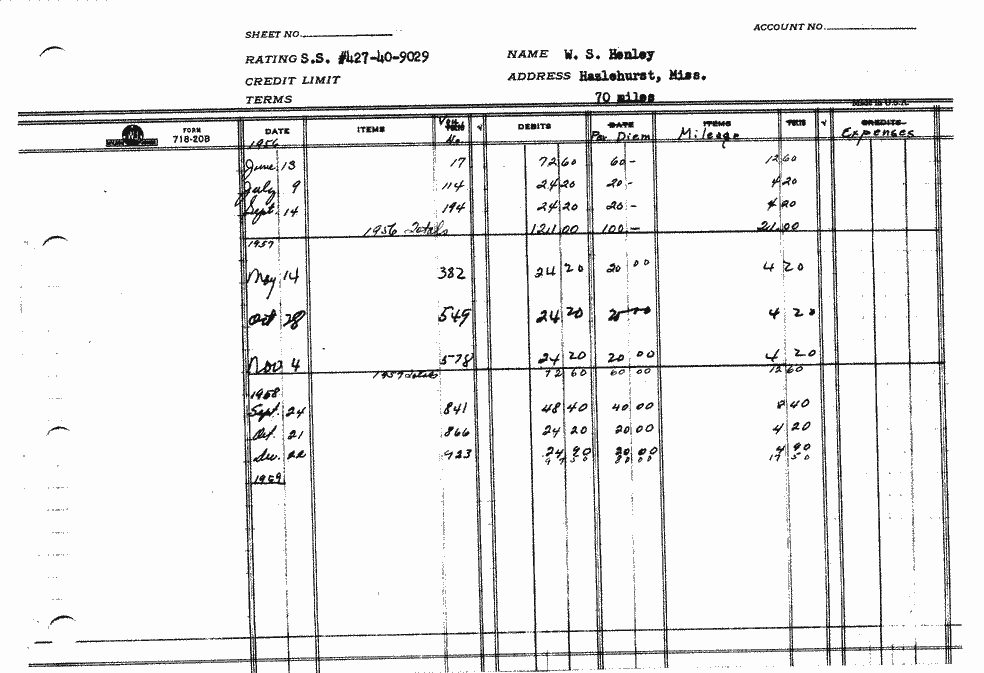 SHEET NO.
ACCOUNT NO.
RATING S.S. #427-40-9029 NAME W. S. Henley
CREDIT LIMIT ADDRESS Hazlehurst, Miss.
TERMS 70 miles
MADE IN U.S.A.
FORM 718-20B DATE ITEMS Vou. No. √ DEBITS DATE Per Diem ITEMS Mileage √ CREDITS Expenses
1956
June 13 17 72 60 60 - 12 60
July 9 114 24 20 20 - 4 20
Sept. 14 194 24 20 20 - 4 20
1956 Totals 121 00 100 - 21.00
1957
May 14 382 24 20 20 00 4 20
Oct 28 549 24 20 20 00 4 20
Nov 4 578 24 20 20 00 4 20
1957 totals 72 60 60 00 12 60
1958
Sept. 24 841 48 40 40 00 8 40
Oct. 21 866 24 20 20 00 4 20
Dec. 22 923 24 90 20 00 4 90
97 50 80 00 17 50
1959